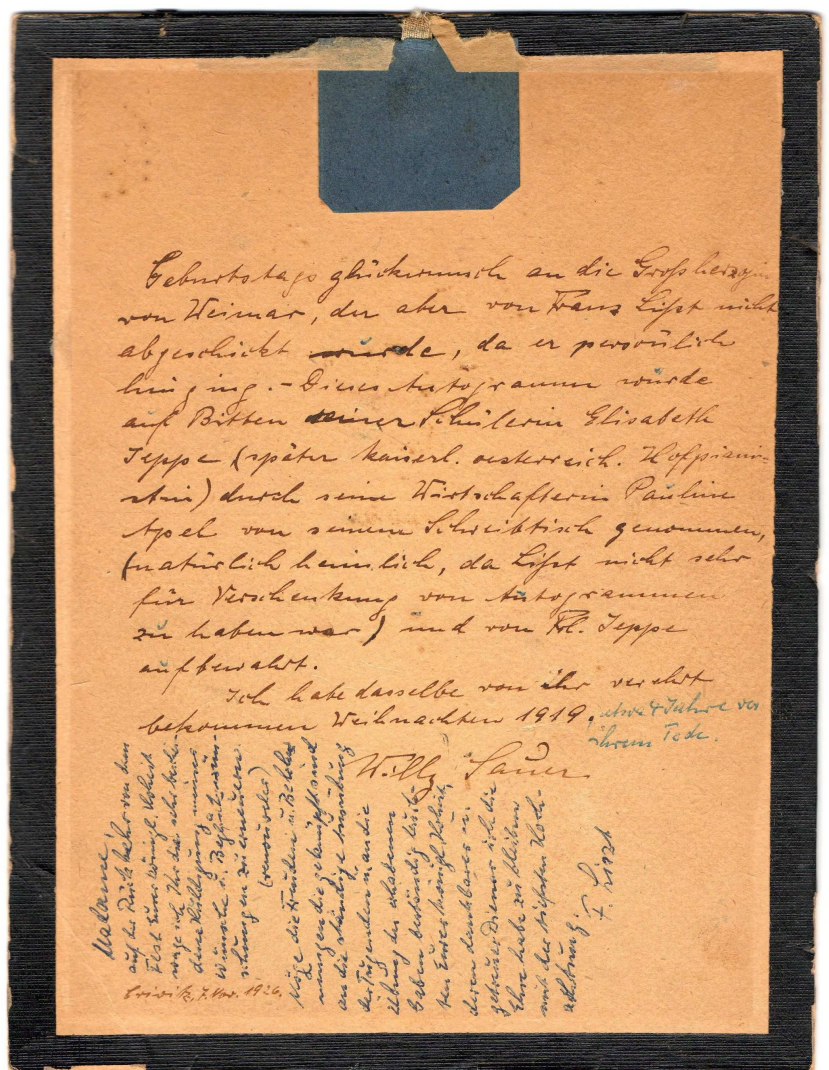 Geburtstagsglückwunsch an die Großherzogin
von Weimar, der aber von Franz Lißt nicht
abgeschickt wurde, da er persönlich
hinging. - Dieses Autogramm wurde
auf Bitten seiner Schülerin Elisabeth
Jeppe (später kaiserl. oesterreich. Hofpiani-
stin) durch seine Wirtschafterin Pauline
Apel von seinem Schreibtisch genommen,
(natürlich heimlich, da Lißt nicht sehr
für Verschenkung von Autogrammen
zu haben war) und von Frl. Jeppe
aufbewahrt.
Ich habe dasselbe von ihr verehrt
bekommen Weihnachten 1919, etwa 4 Jahre vor
ihrem Tode.
Willy Sauer
Madame!
auf der Rückkehr von dem
Fest Eurer Königl. Hoheit
wage ich Ihr die sehr beschei-
dene Huldigung meiner
Wünsche u. Beglückwün-
schungen zu erneuern.
(renouveler)
Möge die Freuden u. Beloh-
nungen die geknüpft sind
an die ständige Ausübung
der Tugenden u. an die
Übung der erhabenen
Gaben beständig
ten Eurer königl. Hoheit,
deren dankbarer u.
getreuer Diener ich die
Ehre habe zu bleiben
mit der tiefsten Hoch-
achtung.
F. Liszt
Crivitz, 7. Nov. 1926.